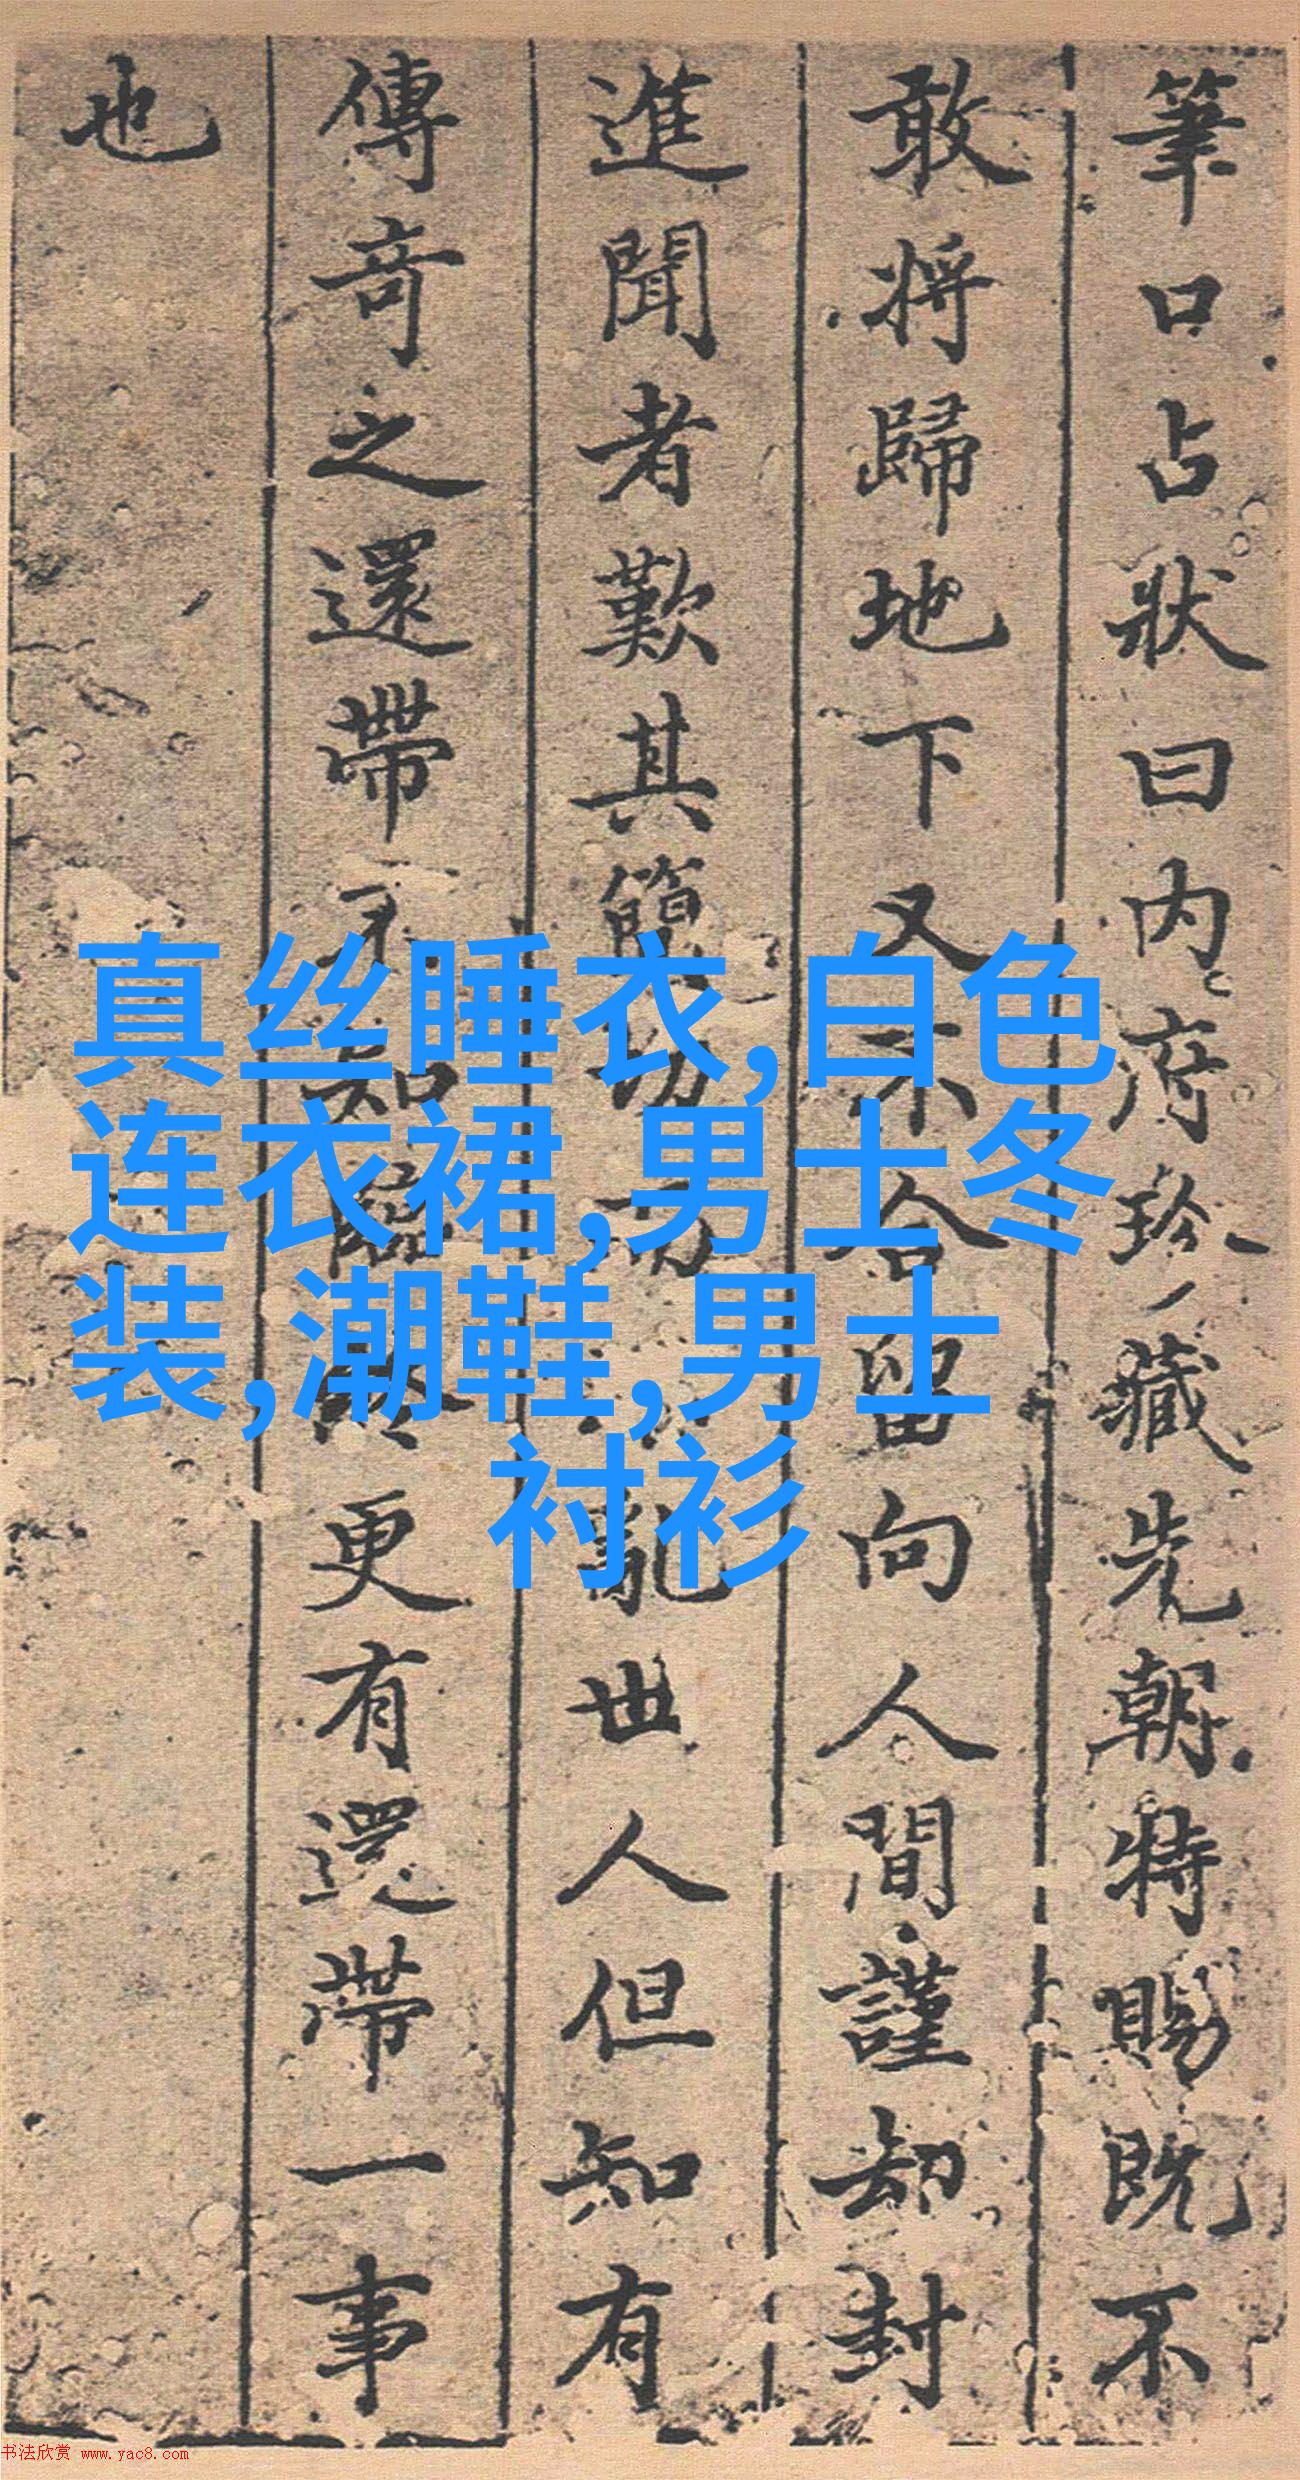 筆口占狀曰内府珍藏先朝特賜既不
敢将歸地下又不合留向人間謹却封
進聞者歎其簡切不亂世人但知有
傳奇之還帶不知臨終更有還帶一事
也
真丝睡衣,白色
连衣裙,男士冬
装,潮鞋,男士
衬衫
书法欣赏 www.yac8.com